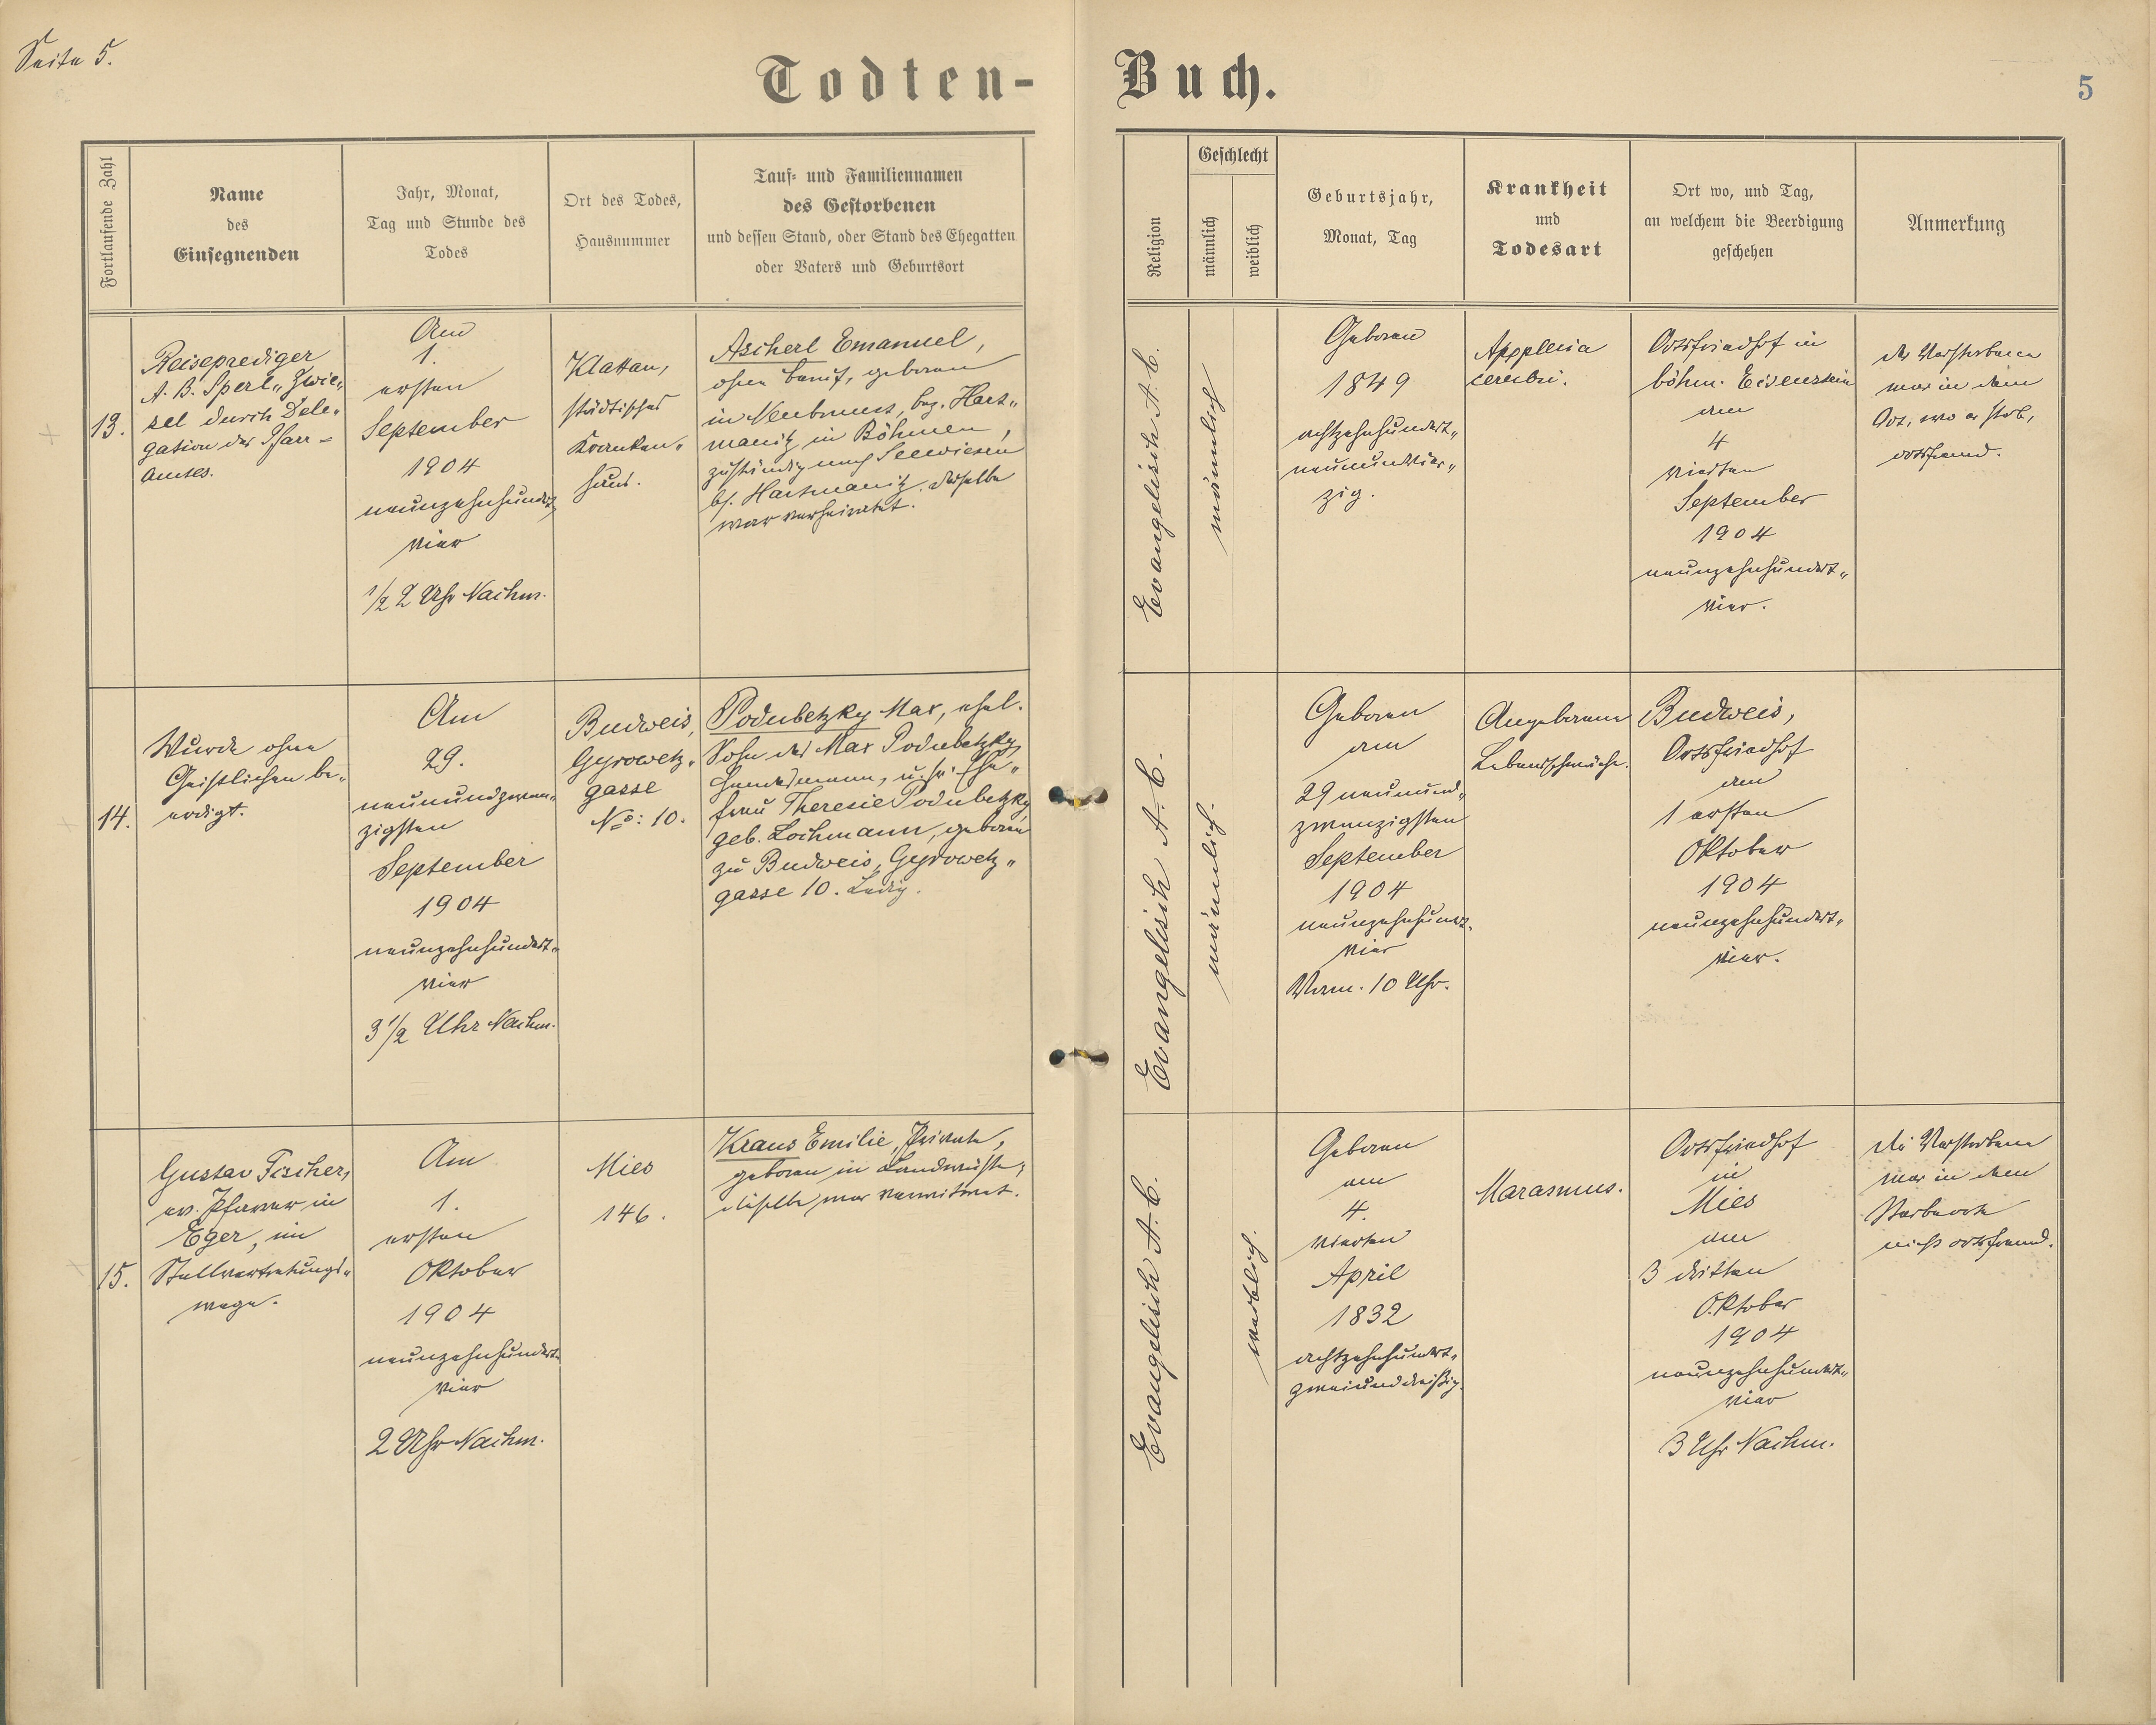 Seite 5.
Todten-Buch.
5
Fortlaufende Zahl
Name
des
Einsegnenden
Jahr, Monat,
Tag und Stunde des
Todes
Ort des Todes,
Hausnummer
Tauf- und Familiennamen
des Gestorbenen
und dessen Stand, oder Stand des Ehegatten
oder Vaters und Geburtsort
Religion
Geschlecht
männlich
weiblich
Geburtsjahr,
Monat, Tag
Krankheit
und
Todesart
Ort wo, und Tag,
an welchem die Beerdigung
geschehen
Anmerkung
13.
Reiseprediger
A. B. Sperl„ Zwie„
sel durch Dele„
gation des Pfarr-
Amtes.
Am
1.
ersten
September
1904
neunzehnhundert„
vier
1/2 2 Uhr Nachm.
Klattau,
städtisches
Kranken„
haus.
Ascherl Emanuel,
ohne Beruf, geboren
in Neubrunst, bez. Hart„
manitz in Böhmen,
zuständig nach Seewiesen
bz. Hartmanitz. derselbe
war verheiratet.
Evangelisch A. C.
männlich
Geboren
1849
achtzehnhundert„
neunundvier„
zig.
Appplexia
cerebri.
Ortsfriedhof in
böhm. Eisenstein
am
4
vierten
September
1904
neunzehnhundert„
vier.
der Verstorbene
war in dem
Ort, wo er starb,
ortsfremd.
14.
Wurde ohne
Geistlichen be„
erdigt.
Am
29.
neunundzwan„
zigsten
September
1904
neunzehnhundert„
vier
3 1/2 Uhr Nachm.
Budweis,
Gyrowetz„
gasse
No: 10.
Podubetzky Max, ehel.
Sohn des Max Podubetzky,
Handelsmann, u. sr. Ehe„
frau Theresie Podubetzky
geb. Lochmann, geboren
zu Budweis, Gyrowetz„
gasse 10. Ledig.
Evangelisch A. C.
männlich.
Geboren
am
29 neunund„
zwanzigsten
September
1904
neunzehnhundert„
vier
Vorm. 10 Uhr.
Angeborene
Lebensschwäche.
Budweis,
Ortsfriedhof
am
1 ersten
Oktober
1904
neunzehnhundert„
vier.
15.
Gustav Fischer,
ev. Pfarrer in
Eger, im
Stellvertretungs„
wege.
Am
1.
ersten
Oktober
1904
neunzehnhundert„
vier
2 Uhr Nachm.
Mies
146.
Kraus Emilie, Private,
geboren in Landwüste,
dieselbe war verwitwet.
Evangelisch A. C.
weiblich.
Geboren
am
4.
vierten
April
1832
achtzehnhundert„
zweiunddreißig.
Marasmus.
Ortsfriedhof
in
Mies
am
3 dritten
Oktober
1904
neunzehnhundert„
vier
3 Uhr Nachm.
die Verstorbene
war in dem
Sterbeorte
nicht ortsfremd.